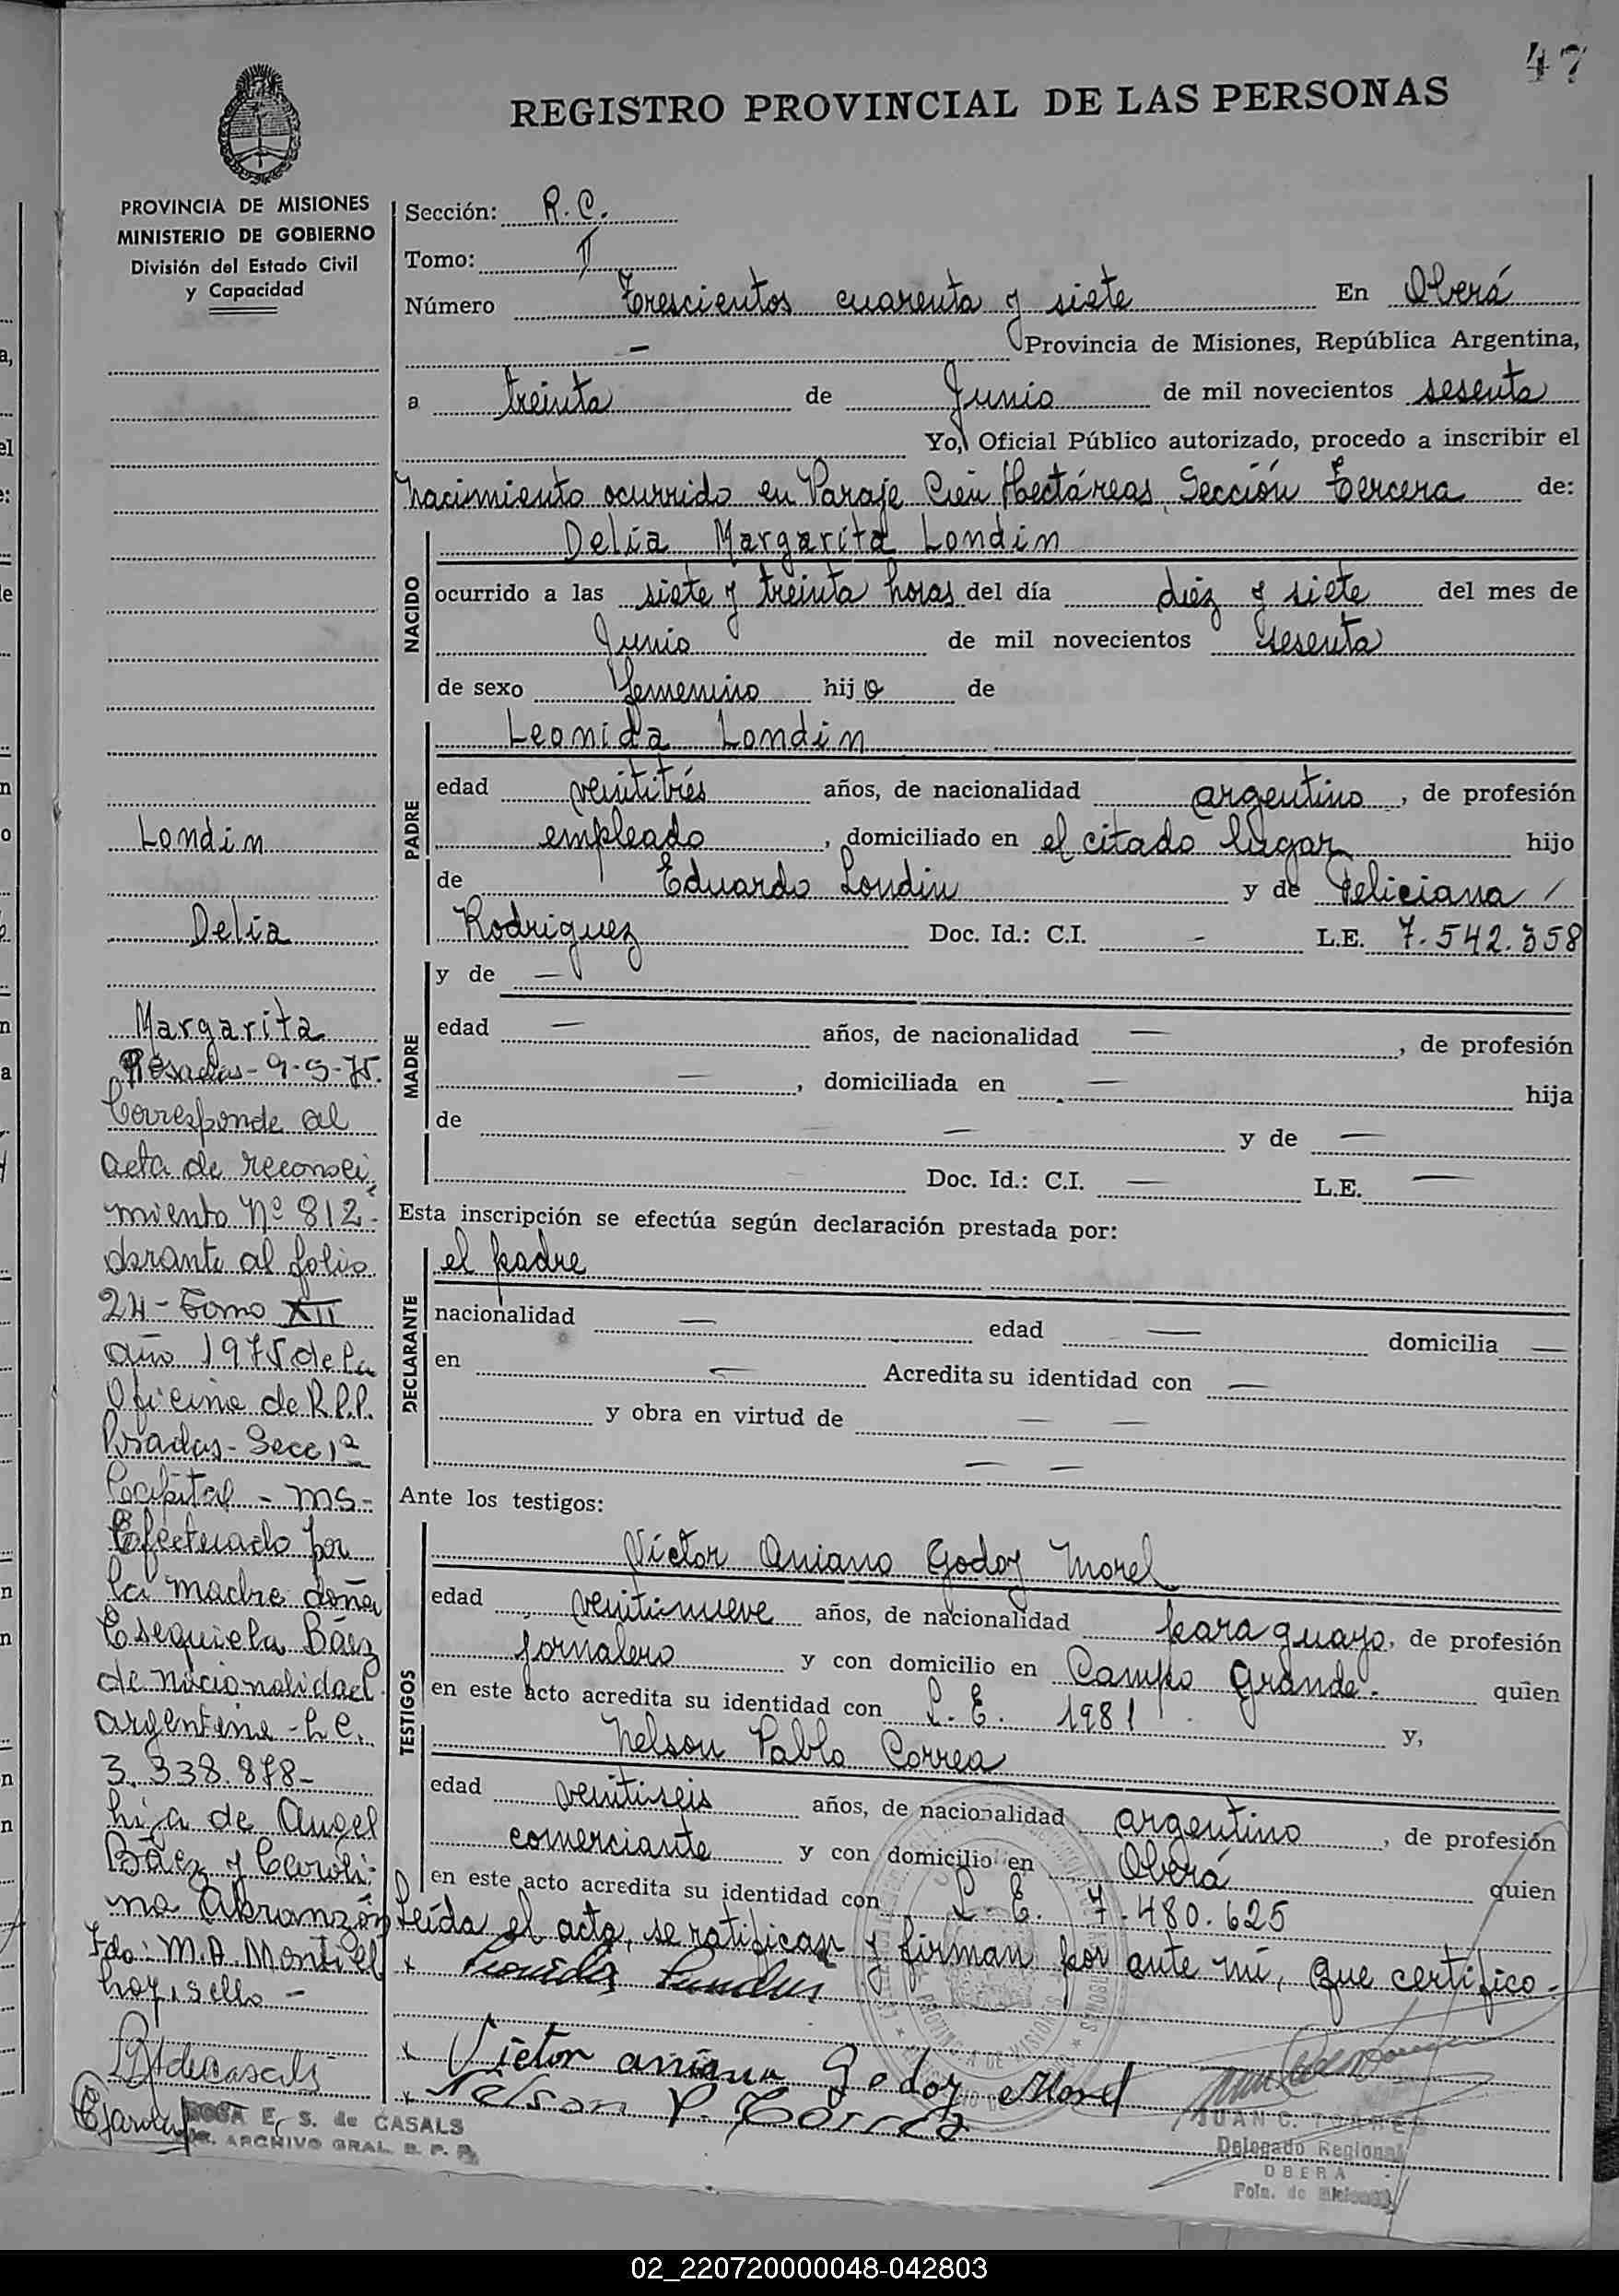 47
REGISTRO PROVINCIAL DE LAS PERSONAS
PROVINCIA DE MISIONES
MINISTERIO DE GOBIERNO
División del Estado Civil
y Capacidad
Londin
Delia
Margarita
Posadas - 9-5-75.
Corresponde al
acta de reconoci
miento Nº 812-
obrante al folio
24 - Tomo XII
año 1975 de la
Oficina de R.P.P.
Posadas - Secc 1ª
Capital - Ms-
Efectuado por
la madre doña
Esequiela Báez
de nacionalidad
argentina - L.C.
3.338.878-
hija de Angel
Báez y Caroli-
na Abranzón
Fdo: M.A. Montiel
hay sello -
ROSA E. S. de CASALS
ARCHIVO GRAL. R. P. P.
Sección: R. C.
Tomo: II
Número Trescientos cuarenta y siete En Oberá
— Provincia de Misiones, República Argentina,
a treinta de Junio de mil novecientos sesenta
Yo, Oficial Público autorizado, procedo a inscribir el
nacimiento ocurrido en Paraje Cien Hectáreas, Sección Tercera de:
NACIDO
Delia Margarita Londin
ocurrido a las siete y treinta horas del día diez y siete del mes de
Junio de mil novecientos sesenta
de sexo femenino hija de
PADRE
Leonida Londin
edad veintitrés años, de nacionalidad argentino, de profesión
empleado, domiciliado en el citado lugar hijo
de Eduardo Londin y de Feliciana /
Rodriguez Doc. Id.: C.I. - L.E. 7.542.358
MADRE
y de —
edad — años, de nacionalidad —, de profesión
—, domiciliada en — hija
de — y de —
Doc. Id.: C.I. — L.E. —
Esta inscripción se efectúa según declaración prestada por:
DECLARANTE
el padre
nacionalidad — edad — domicilia —
en — Acredita su identidad con —
y obra en virtud de — —
— —
Ante los testigos:
TESTIGOS
Víctor Aniano Godoy Morel
edad veintinueve años, de nacionalidad paraguayo, de profesión
jornalero y con domicilio en Campo Grande. quien
en este acto acredita su identidad con L. E. 1981 y,
Nelson Pablo Correa
edad veintiseis años, de nacionalidad argentino, de profesión
comerciante y con domicilio en Oberá quien
en este acto acredita su identidad con L. E. 7.480.625
Leída el acta, se ratifican y firman por ante mí, que certifico.-
x Leonida Londin
x Victor aniano Godoy Morel
x Nelson P. Correa
PROVINCIA DE MISIONES
JUAN C. TORRES
Delegado Regional
OBERA
Pcia. de Misiones
02_220720000048-042803